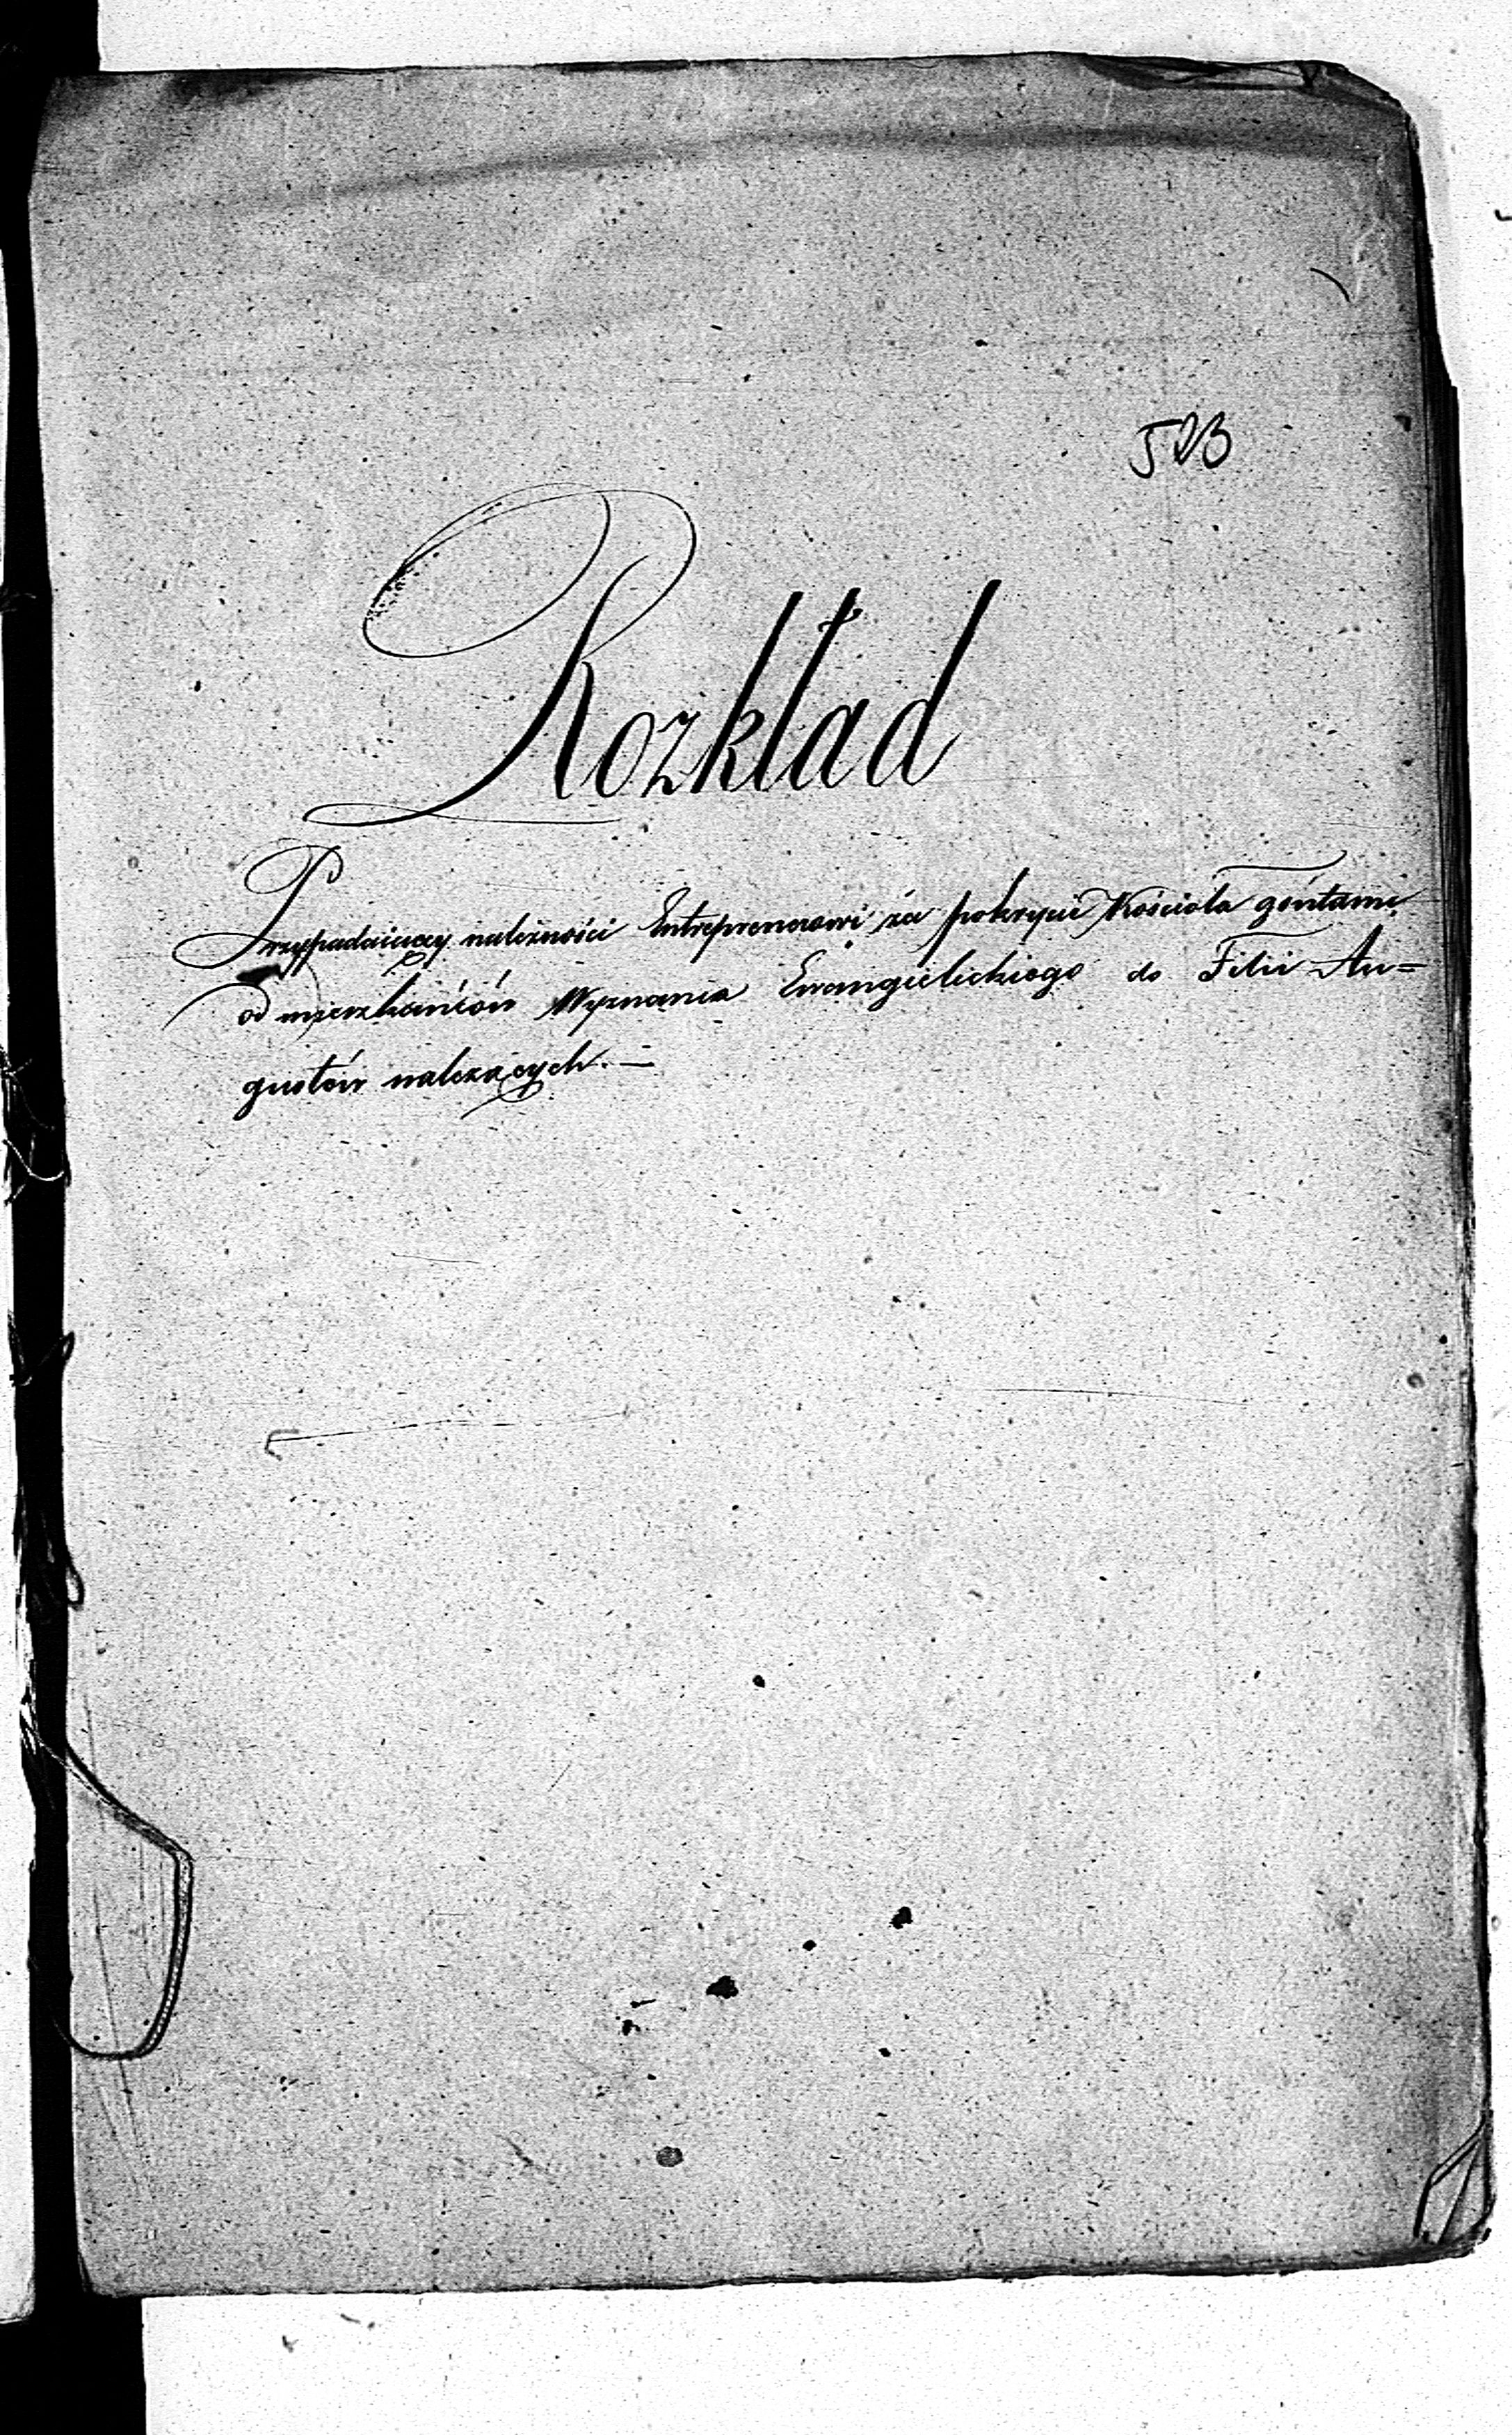 523
Rozkład
Przypadaiącey należności Entreprenerowi za pokrycie Kościoła gontami
od mieszkańców Wyznania Ewangielickiego do Filii Au=
gustów należących.—